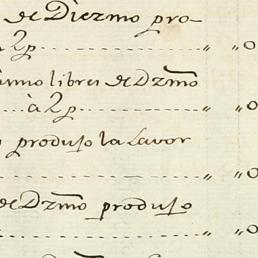 de Diezmo pro-
à 2p ,, ,, 0
libres de Dzmo
à 2p ,, ,, 0
produso la Lavor
,, ,, 0
de Dzmo produso
,, ,, 0